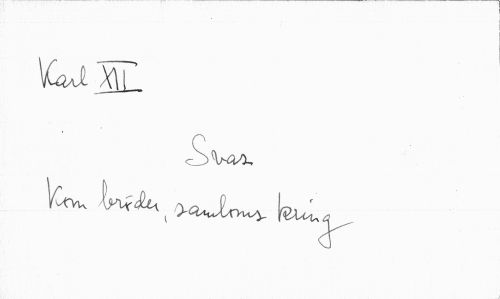 Karl XII
Svar
Kom bröder, samloms kring